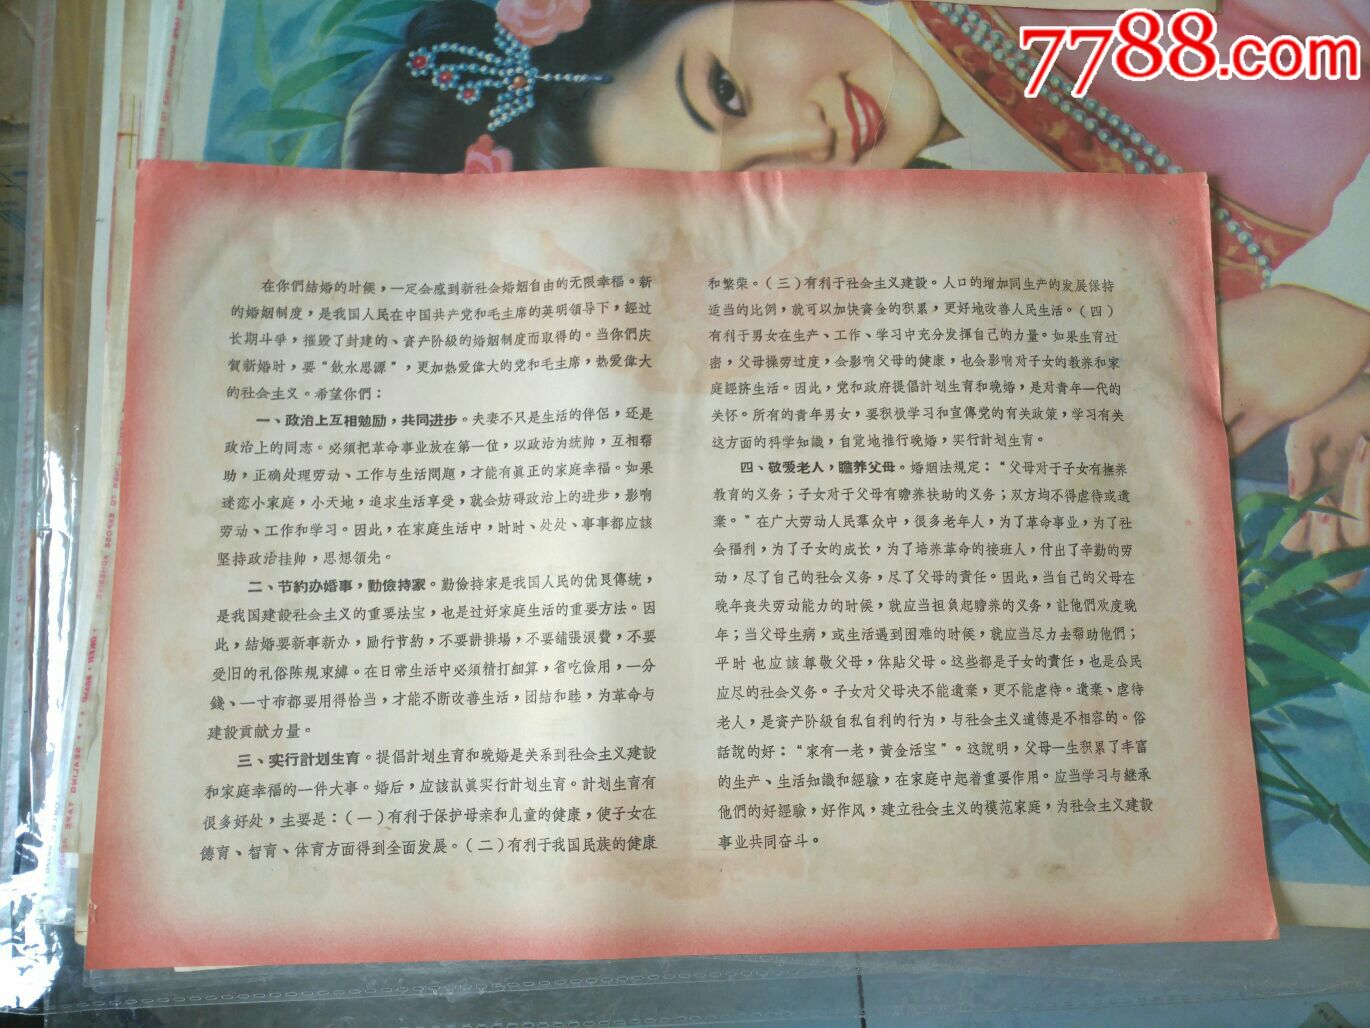 7788.com
在你們結婚的时候，一定会感到新社会婚姻自由的无限幸福。新
的婚姻制度，是我国人民在中国共产党和毛主席的英明领导下，經过
长期斗爭，摧毁了封建的、資产阶級的婚姻制度而取得的。当你們庆
賀新婚时，要“飲水思源”，更加热爱偉大的党和毛主席，热爱偉大
的社会主义。希望你們：
一、政治上互相勉励，共同进步。夫妻不只是生活的伴侶，还是
政治上的同志。必須把革命事业放在第一位，以政治为統帅，互相帮
助，正确处理劳动、工作与生活問題，才能有眞正的家庭幸福。如果
迷恋小家庭，小天地，追求生活享受，就会妨碍政治上的进步，影响
劳动、工作和学习。因此，在家庭生活中，时时、处处、事事都应該
坚持政治挂帅，思想領先。
二、节約办婚事，勤儉持家。勤儉持家是我国人民的优良傳統，
是我国建設社会主义的重要法宝，也是过好家庭生活的重要方法。因
此，結婚要新事新办，励行节約，不要讲排場，不要鋪張浪費，不要
受旧的礼俗陈規束縛。在日常生活中必須精打細算，省吃儉用，一分
錢、一寸布都要用得恰当，才能不断改善生活，团結和睦，为革命与
建設貢献力量。
三、实行計划生育。提倡計划生育和晚婚是关系到社会主义建設
和家庭幸福的一件大事。婚后，应該认眞实行計划生育。計划生育有
很多好处，主要是：（一）有利于保护母亲和儿童的健康，使子女在
德育、智育、体育方面得到全面发展。（二）有利于我国民族的健康
和繁荣。（三）有利于社会主义建設。人口的增加同生产的发展保持
适当的比例，就可以加快資金的积累，更好地改善人民生活。（四）
有利于男女在生产、工作、学习中充分发揮自己的力量。如果生育过
密，父母操劳过度，会影响父母的健康，也会影响对子女的教养和家
庭經济生活。因此，党和政府提倡計划生育和晚婚，是对青年一代的
关怀。所有的青年男女，要积极学习和宣傳党的有关政策，学习有关
这方面的科学知識，自覚地推行晚婚，实行計划生育。
四、敬爱老人，贍养父母。婚姻法規定：“父母对于子女有撫养
教育的义务；子女对于父母有贍养扶助的义务；双方均不得虐待或遺
棄。”在广大劳动人民羣众中，很多老年人，为了革命事业，为了社
会福利，为了子女的成长，为了培养革命的接班人，付出了辛勤的劳
动，尽了自己的社会义务，尽了父母的責任。因此，当自己的父母在
晚年丧失劳动能力的时候，就应当担負起贍养的义务，让他們欢度晚
年；当父母生病，或生活遇到困难的时候，就应当尽力去帮助他們；
平时也应該尊敬父母，体貼父母。这些都是子女的責任，也是公民
应尽的社会义务。子女对父母决不能遺棄，更不能虐待。遺棄、虐待
老人，是資产阶級自私自利的行为，与社会主义道德是不相容的。俗
話說的好：“家有一老，黄金活宝”。这說明，父母一生积累了丰富
的生产、生活知識和經驗，在家庭中起着重要作用。应当学习与継承
他們的好經驗，好作风，建立社会主义的模范家庭，为社会主义建設
事业共同奋斗。